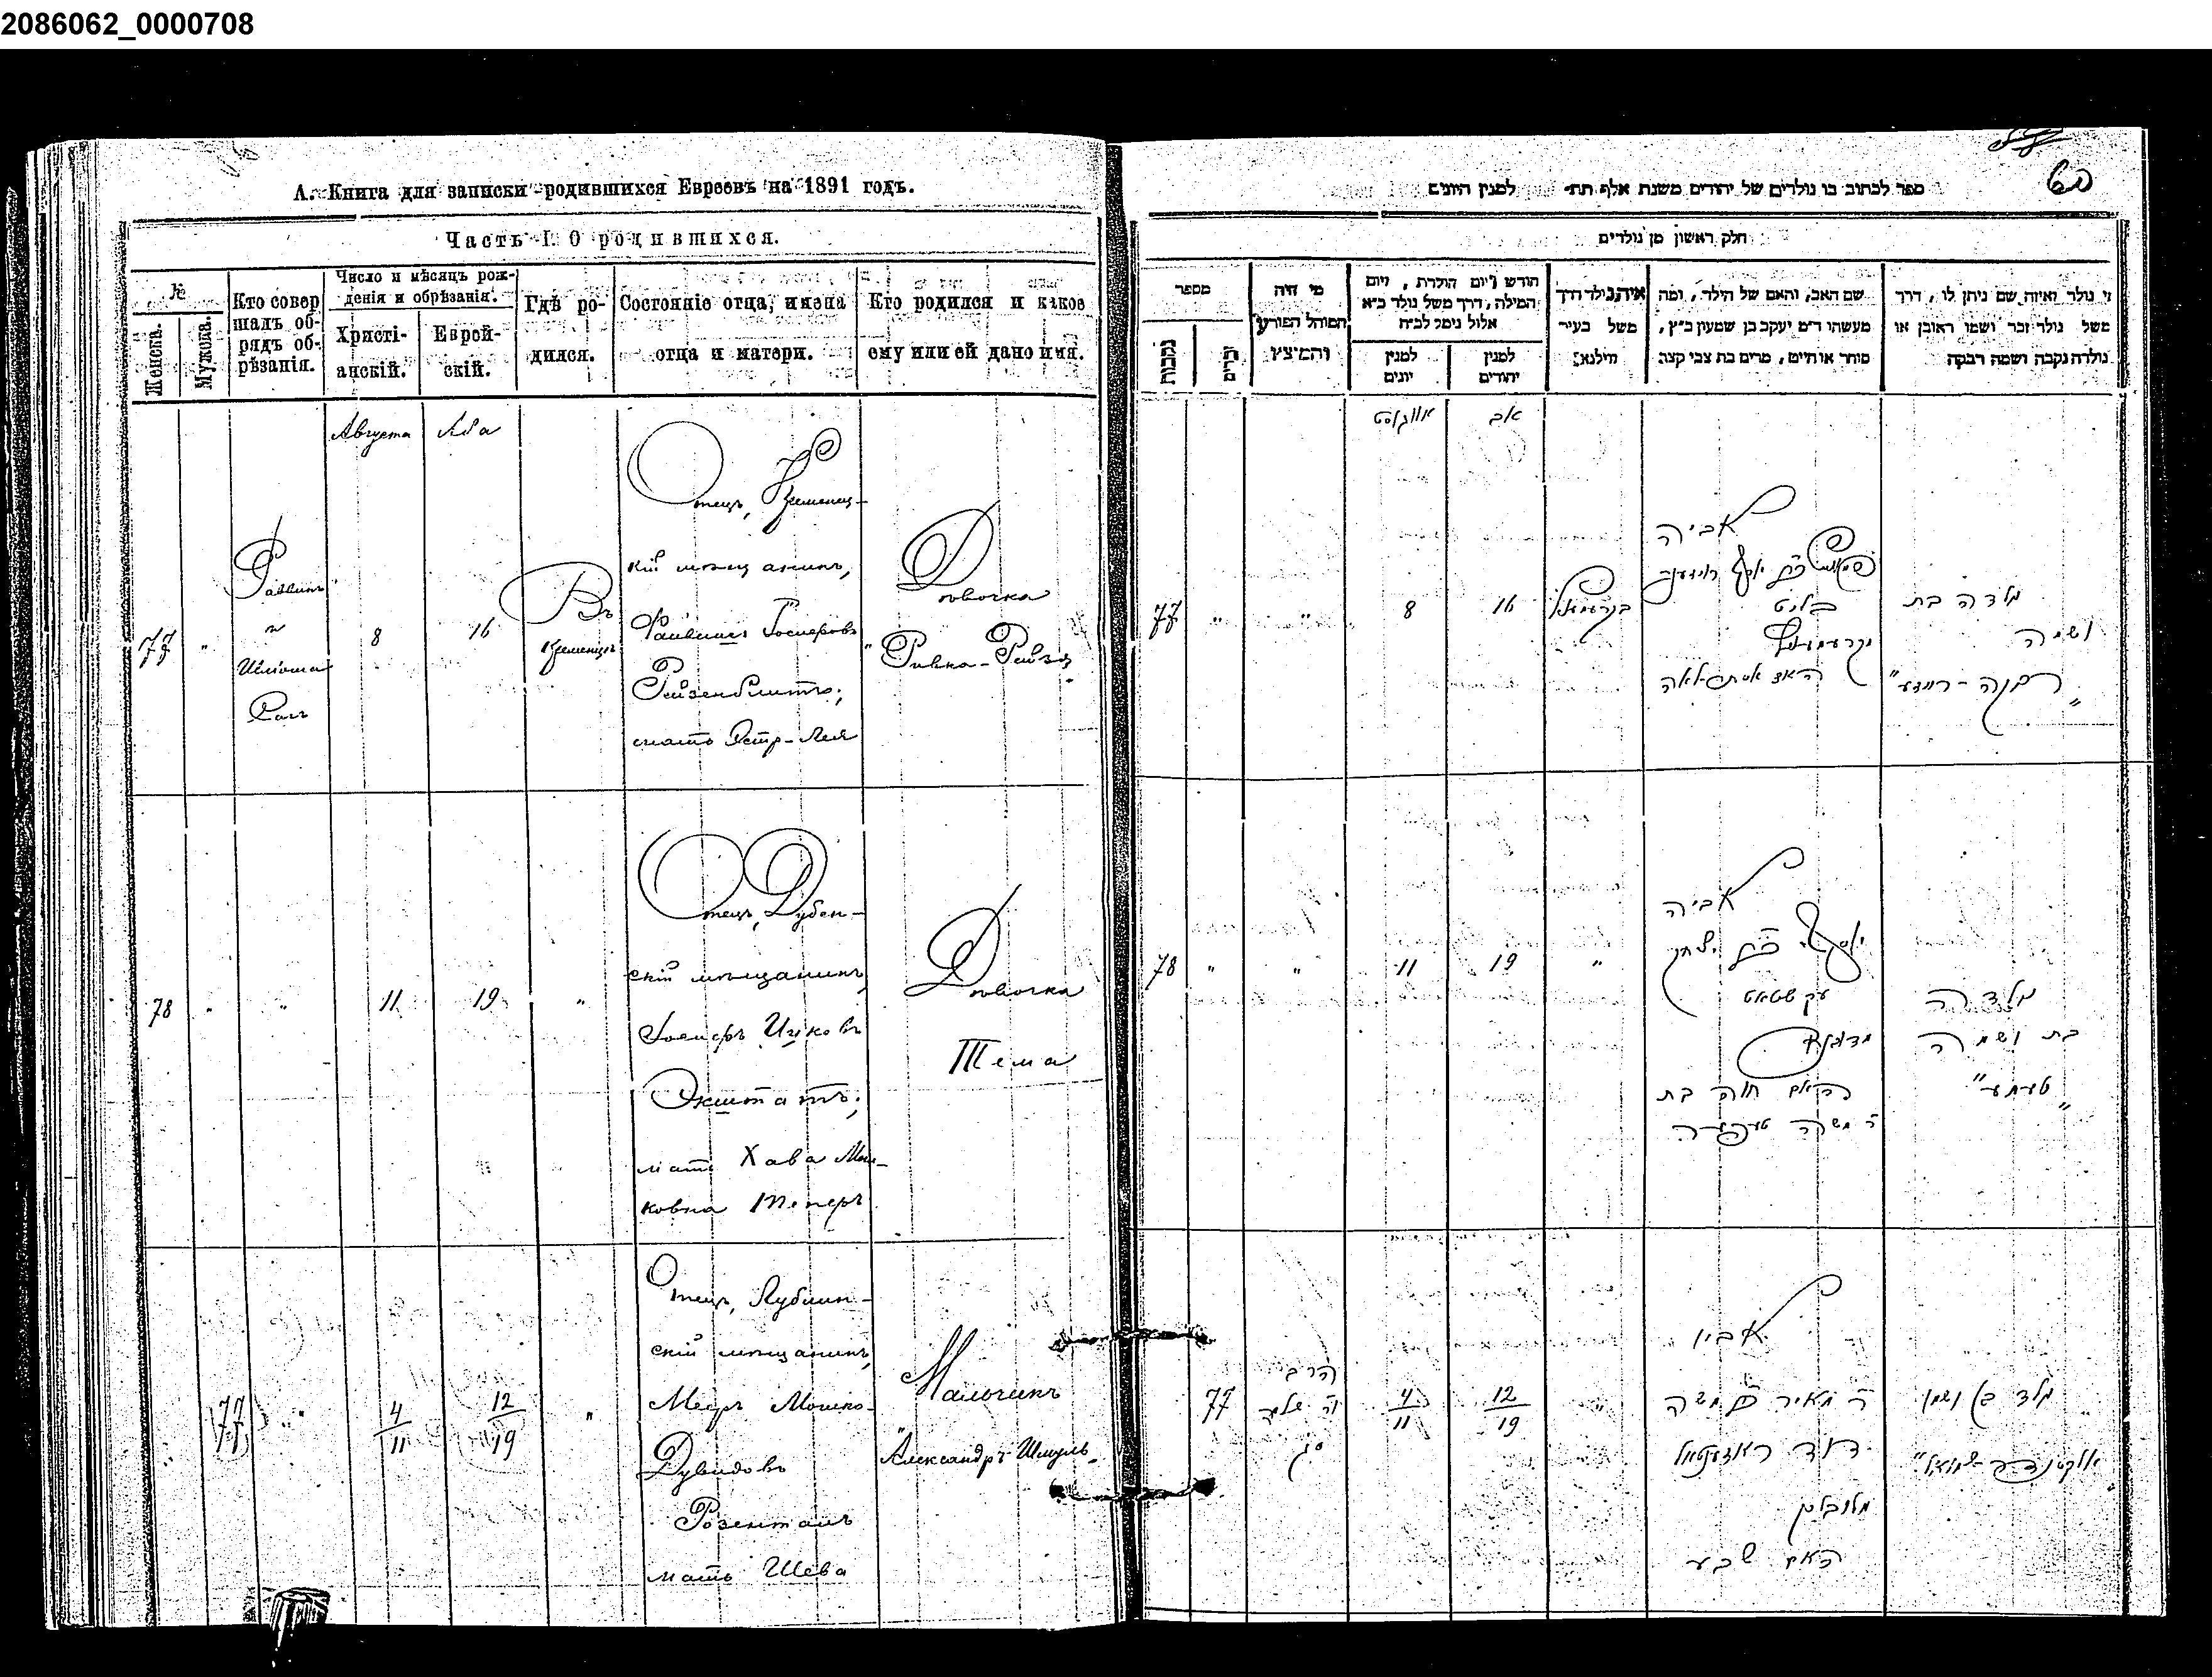 2086062_0000708
А. Книга для записки родившихся Евреевъ на 1891 годъ.
Часть I. О родившихся.
№
Женска.
Мужска.
Кто совер
шалъ об-
рядъ об-
рѣзанія.
Число и мѣсяцъ рож-
денія и обрѣзанія.
Христі-
анскій.
Еврей-
скій.
Гдѣ ро-
дился.
Состояніе отца, имена
отца и матери.
Кто родился и какое
ему или ей дано имя.
Августа
Ава
77
"
Раввинъ
и
8
16
Въ
Кременцѣ
Отецъ, Кременец-
кій мѣщанинъ,
Файвишъ Іосиповъ
Рейзенблитъ;
мать Эстр-Лея
Дѣвочка
"Ривка-Рейзя
78
"
"
11
19
"
Отецъ, Дубен-
скій мѣщанинъ,
Іосифъ Ицковъ
Экштатъ;
мать Хава Мош-
ковна Теперъ
Дѣвочка
Тема
77
"
4/11
12/19
"
Отецъ, Лублин-
скій мѣщанинъ,
Мееръ Мошко-
Дувидовъ
Розенталъ
мать Шева
Мальчикъ
"Александръ-Шмуль
60
ספר לכתוב בו נולדים של יהודים משנת אלף תת׳ למנין היונים
חלק ראשון מן נולדים
מספר
נקבות
זכרים
מי היה
המוהל הפורע
והמוצץ
חודש ויום הולדת, ויום
המילה, דרך משל נולד כ״א
אלול נימל לכ״ח
למנין
יונים
למנין
יהודים
איה נולד דרך
משל בעיר
ווילנא
שם האב, והאם של הילד, ומה
מעשהו ד״מ יעקב בן שמעון כ״ץ,
סוחר או חייט, מרים בת צבי קצב
מי נולד ואיזה שם ניתן לו, דרך
משל נולד זכר ושמו ראובן או
נולדה נקבה ושמה רבקה
אווגוסט
אב
77
"
"
8
16
אביה
נולדה בת
ושמה
"רבקה-רייזע"
78
"
"
11
19
"
אביה
יוסף ב״ר יצחק
עקשטאט
מדובנא
האם חוה בת
ר׳ משה טעפער
נולדה
בת ושמה
"טעמע"
77
הרב
ור׳ שלמה
4/11
12/19
"
אביו
ר׳ מאיר ב״ר משה
דוד ראזענטאל
מלובלין
האם שבע
נולד בן ושמו
אלכסנדר-שמואל"